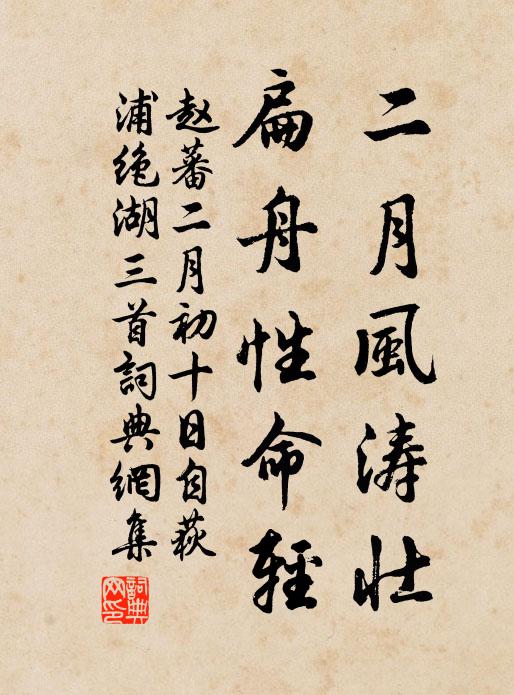 二月風涛壮
扁舟性命輕
赵蕃二月初十日自荻
浦绝湖三首詞典網集
詞典网印